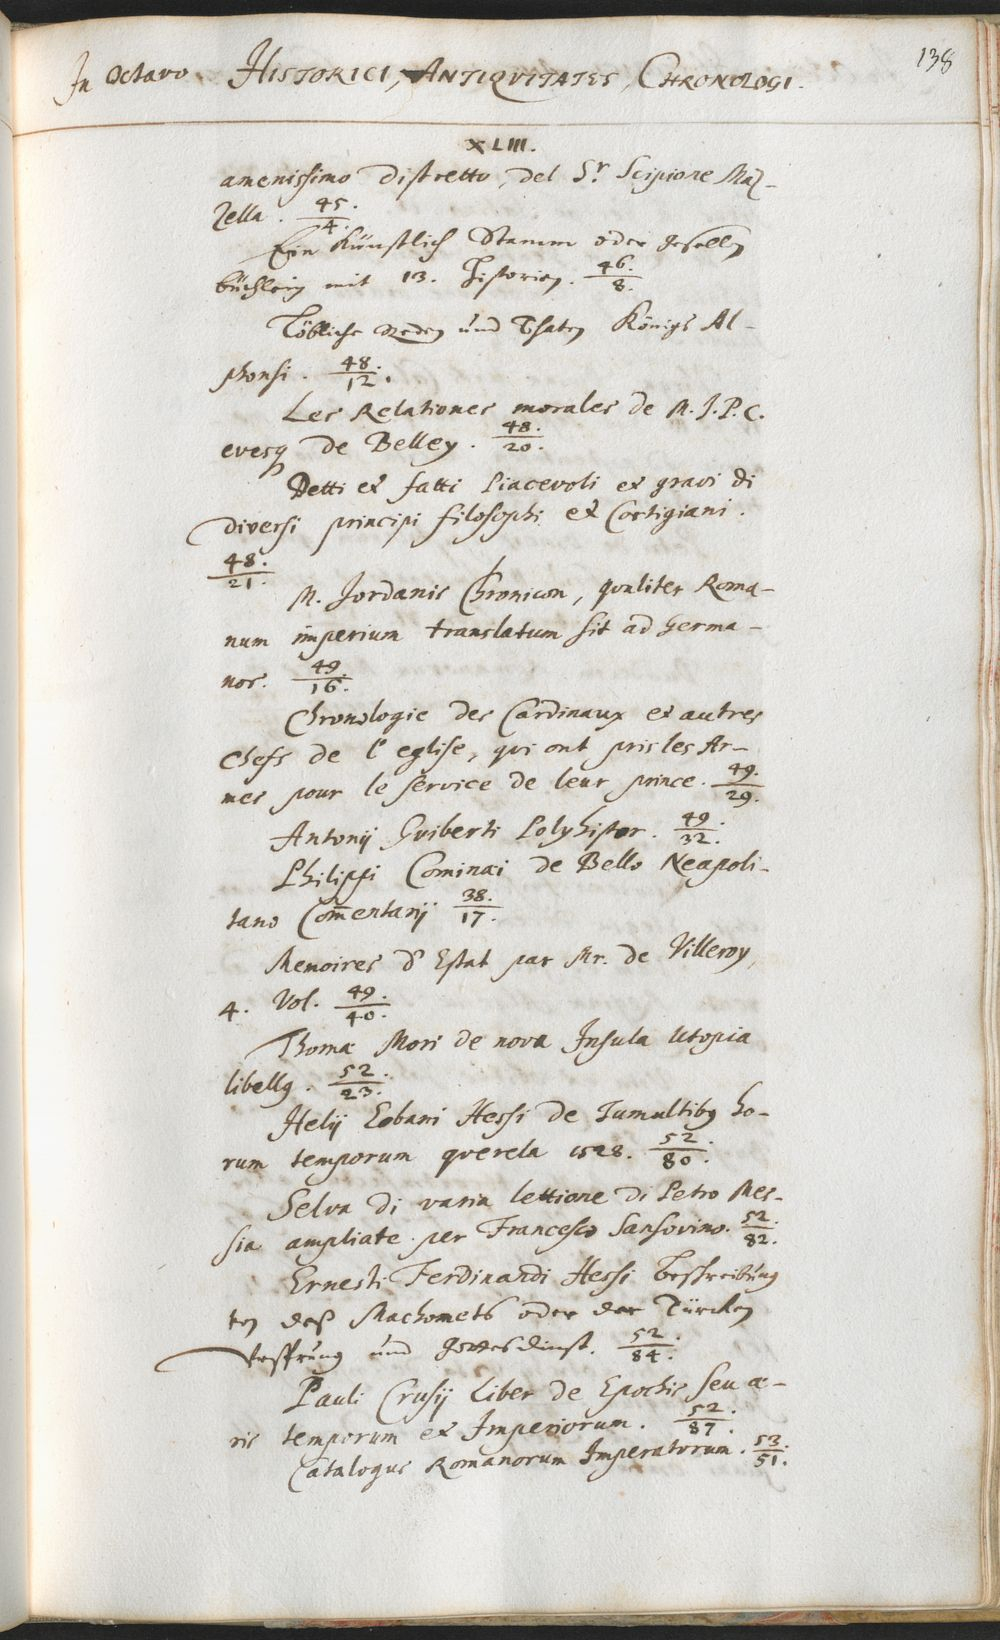 In Octavo. HISTORICI, ANTIQVITATES, CHRONOLOGI.
138
XLIII.
amenissimo distretto, del Sr. Scipione Maz-
zella. 45./4.
Ein Künstlich Stamm oder gesellen
büchlein mit 13. Historien. 46./8.
Löbliche Reden und Thaten Königs Al-
phonsi. 48./12.
Les Relationes morales de M. J. P. C.
evesq de Belley. 48./20.
Detti et fatti Piacevoli et gravi di
diversi principi filosophi et Cortigiani.
48./21.
M. Jordanis Chronicon, qualiter Roma-
num imperium translatum sit ad Germa-
nos. 49./16.
Chronologie des Cardinaux et autres
Chefs de l'eglise, qui ont pris les Ar-
mes pour le service de leur prince. 49./29.
Antonij Guiberti Polyhistor. 49./32.
Philippi Cominæi de Bello Neapoli-
tano Com̄entarij 38./17.
Memoires d'Estat par Mr. de Villeroy,
4. Vol. 49./40.
Thomæ Mori de nova Insula Utopia
libellq. 52./23.
Helij Eobani Hessi de Tumultibq ho-
rum temporum querela 1528. 52./80.
Selva di varia lettione di Petro Mes-
sia ampliate per Francesco Sansovino. 52./82.
Ernesti Ferdinandi Hessi Beschreibung
von deß Machomets oder der Türcken
Vrsprung und gottesdinst. 52./84.
Pauli Crusij Liber de Epochis seu æ-
ris temporum et Imperiorum. 52./87.
Catalogus Romanorum Imperatorum. 53./51.